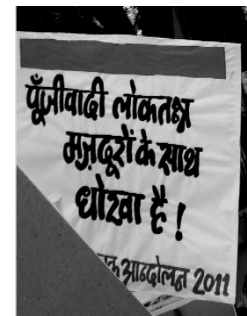 पूँजीवादी लोकतंत्र
मज़दूरों के साथ
धोखा है !
आन्दोलन 2011